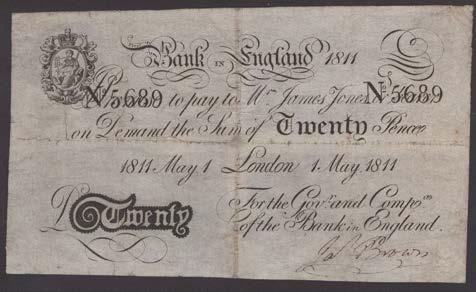 Bank in England 1811
No. 5689 No. 5689
to pay to Mr. James Jones
on Demand the Sum of Twenty Pence
1811 May 1 London 1 May 1811
Twenty
For the Govr. and Compa.
of the Bank in England.
Jas. Brown